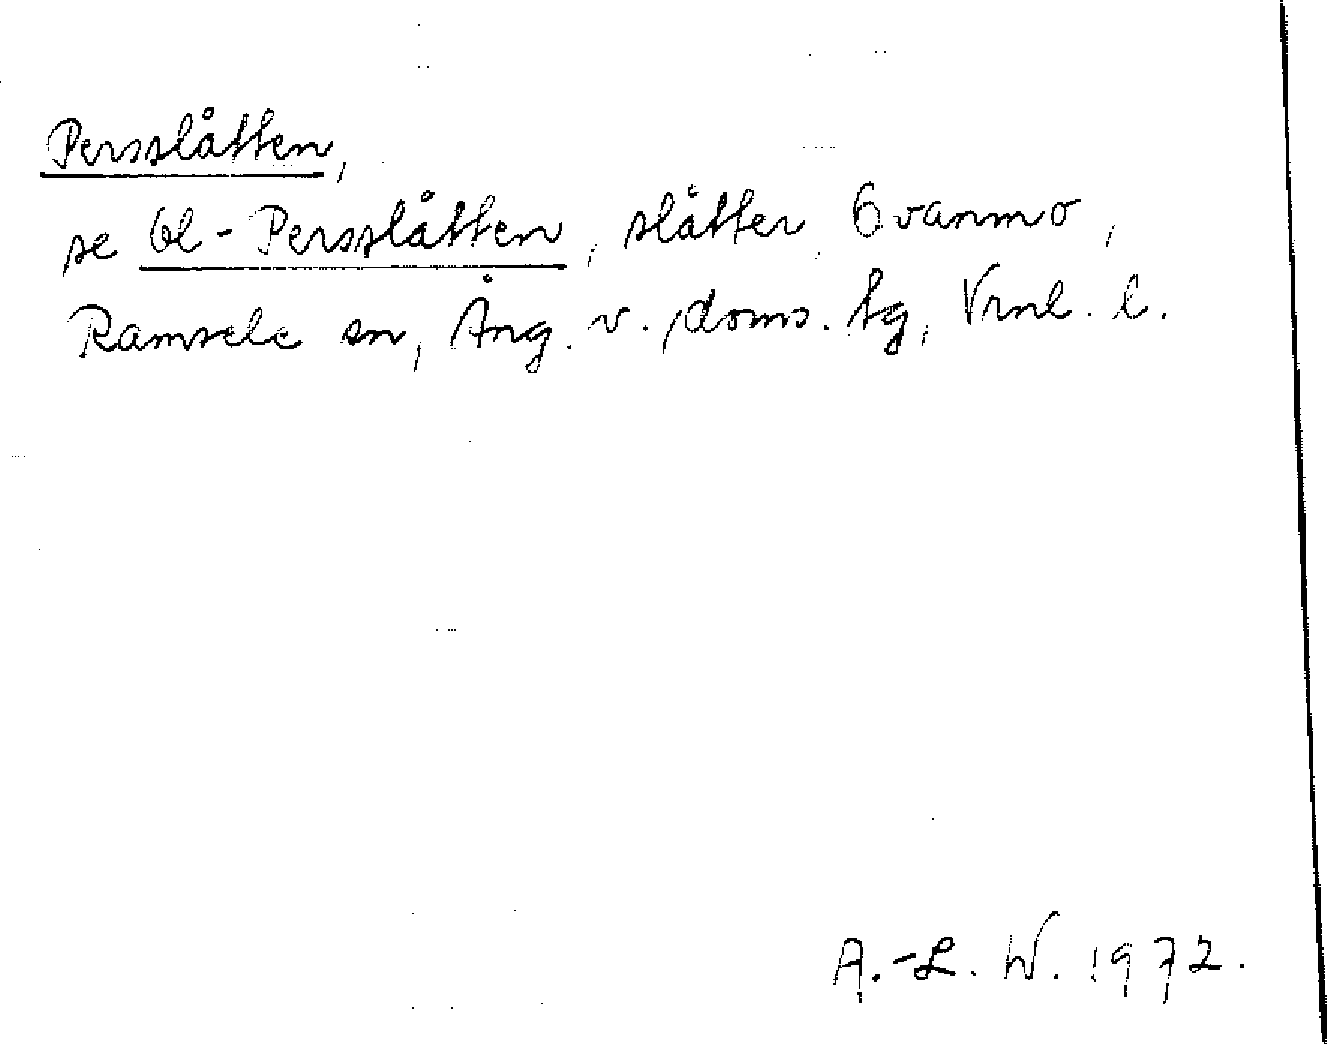 Persslåtten,
se Ol-Persslåtten, slåtter, Ovanmo,
Ramsele sn, Ång. v. doms. tg, Vrnl. l.
A.-L. W. 1972.